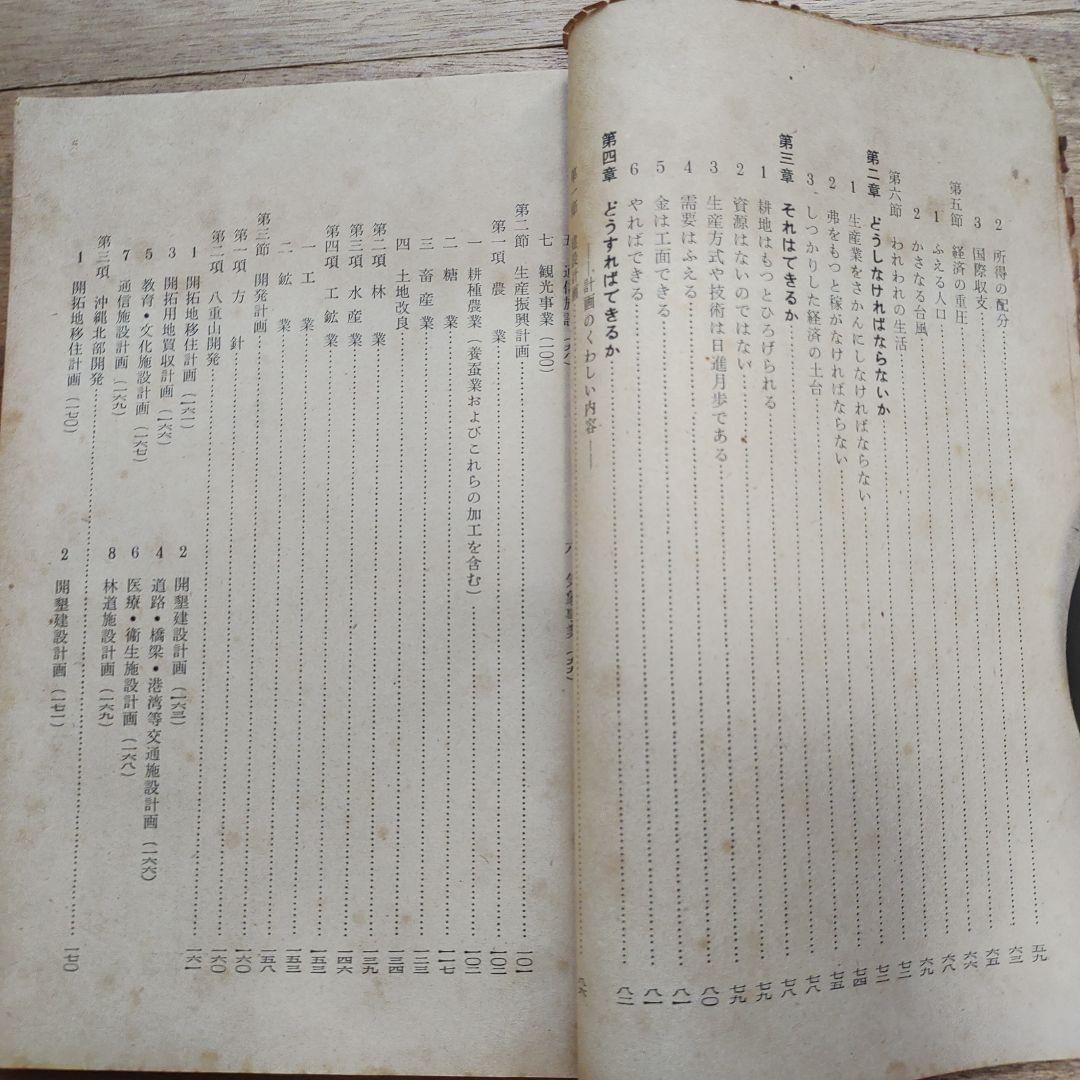 2 所得の配分……五九
3 国際収支……六三
第五節 経済の重圧……六五
1 ふえる人口……六六
2 かさなる台風……六八
第六節 われわれの生活……六九
第二章 どうしなければならないか……七二
1 生産業をさかんにしなければならない……七二
2 弗をもつと稼がなければならない……七四
3 しつかりした経済の土台……七五
第三章 それはできるか……七八
1 耕地はもつとひろげられる……七八
2 資源はないのではない……七九
3 生産方式や技術は日進月歩である……七九
4 需要はふえる……八〇
5 金は工面できる……八一
6 やればできる……八一
第四章 どうすればできるか……八二
——計画のくわしい内容——
七 観光事業(一〇〇)
第二節 生産振興計画……一〇一
第一項 農業……一〇二
一 耕種農業(養蚕業およびこれらの加工を含む)……一〇二
二 糖業……一一七
三 畜産業……一二三
四 土地改良……一三四
第二項 林業……一三九
第三項 水産業……一四六
第四項 工鉱業……一五三
一 工業……一五三
二 鉱業……一五八
第三節 開発計画……一六〇
第一項 方針……一六〇
第二項 八重山開発……一六一
1 開拓地移住計画(一六一) 2 開墾建設計画(一六三)
3 開拓用地買収計画(一六六) 4 道路・橋梁・港湾等交通施設計画(一六六)
5 教育・文化施設計画(一六七) 6 医療・衛生施設計画(一六八)
7 通信施設計画(一六九) 8 林道施設計画(一六九)
第三項 沖縄北部開発……一七〇
1 開拓地移住計画(一七〇) 2 開墾建設計画(一七一)